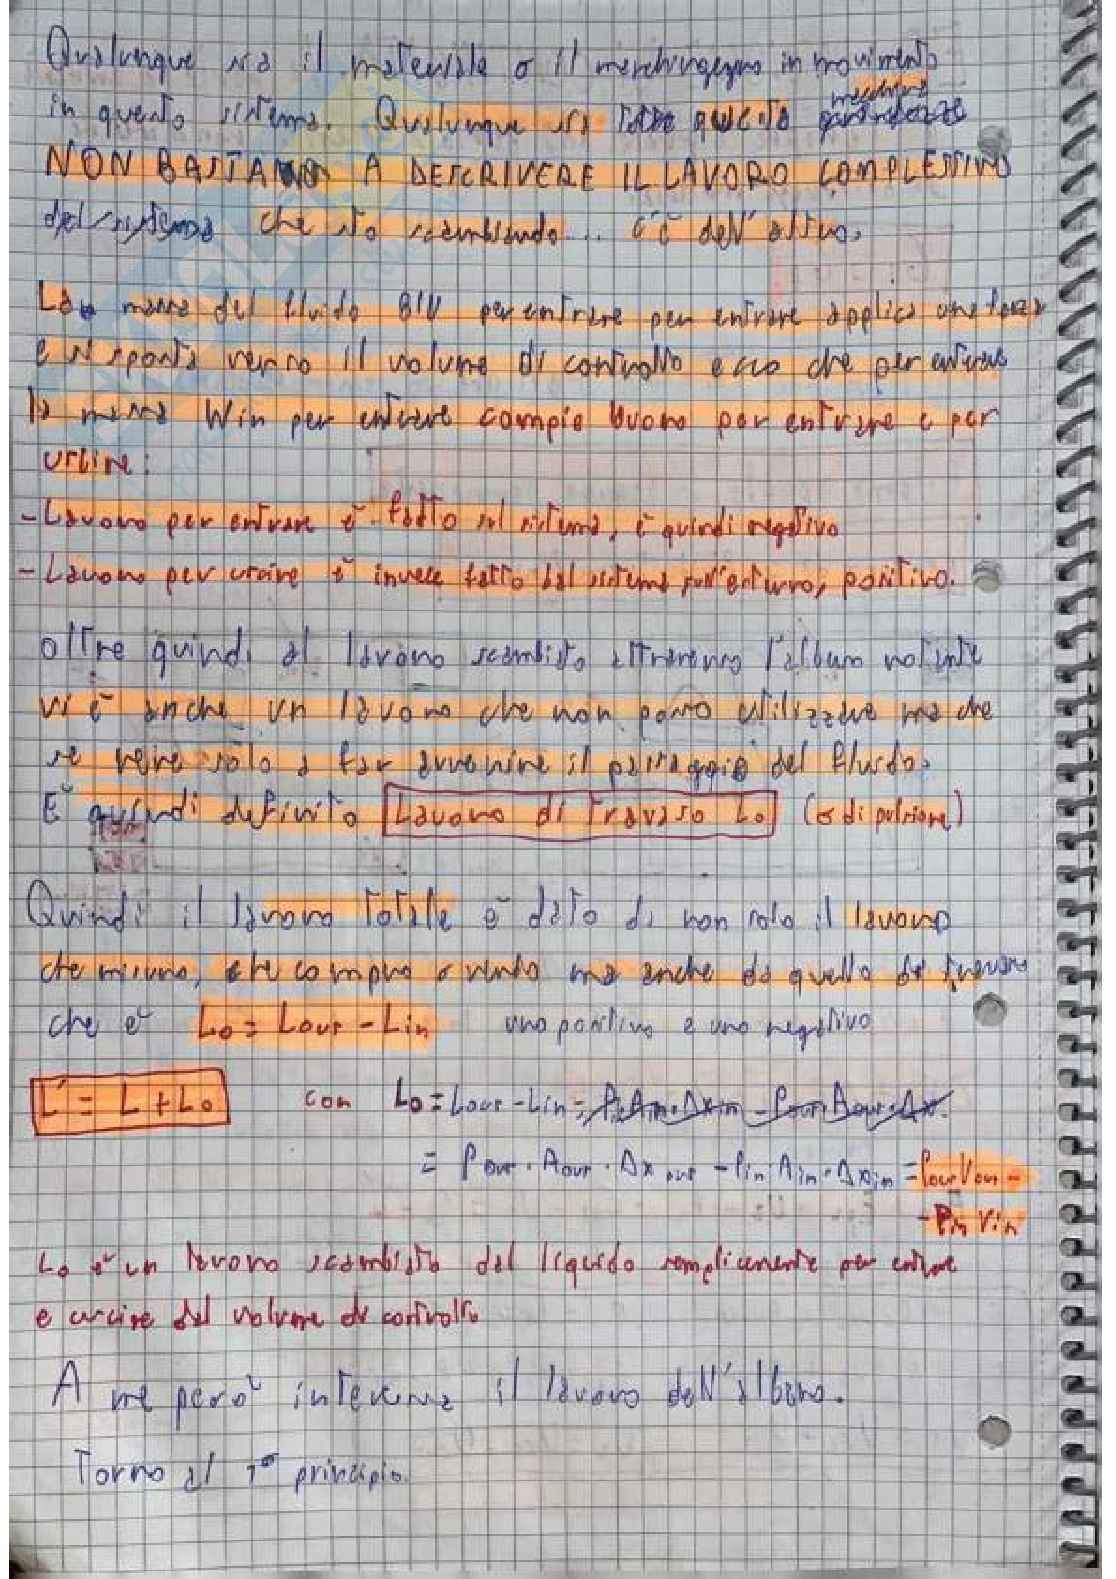 Qualunque sia il materiale o il marchingegno in movimento
in questo sistema. Qualunque sia questa macchina
NON BASTANO A DESCRIVERE IL LAVORO COMPLESSIVO
del sistema che sto scambiando... c'è dell'altro.
La massa del fluido per entrare per entrare applica una forza
e si sposta verso il volume di controllo ecco che per entrare
la massa Win per entrare compie lavoro per entrare e per
uscire:
- Lavoro per entrare è fatto sul sistema, è quindi negativo
- Lavoro per uscire è invece fatto dal sistema sull'esterno, positivo.
oltre quindi al lavoro scambiato attraverso l'album rotante
vi è anche un lavoro che non posso utilizzare ma che
se serve solo a far avvenire il passaggio del fluido.
E' quindi definito Lavoro di Travaso Lo (o di pulsione)
Quindi il lavoro totale è dato da non solo il lavoro
che misuro, che compro o vendo ma anche da quello di travaso
che è Lo = Lout - Lin uno positivo e uno negativo
L' = L + Lo con Lo = Lout - Lin = Pin Ain · Δxin - Pout · Aout · Δx
= Pout · Aout · Δx out - Pin Ain · Δxin = Pout Vout -
- Pin Vin
Lo è un lavoro scambiato dal liquido semplicemente per entrare
e uscire dal volume di controllo
A me però interessa il lavoro dell'albero.
Torno al 1° principio